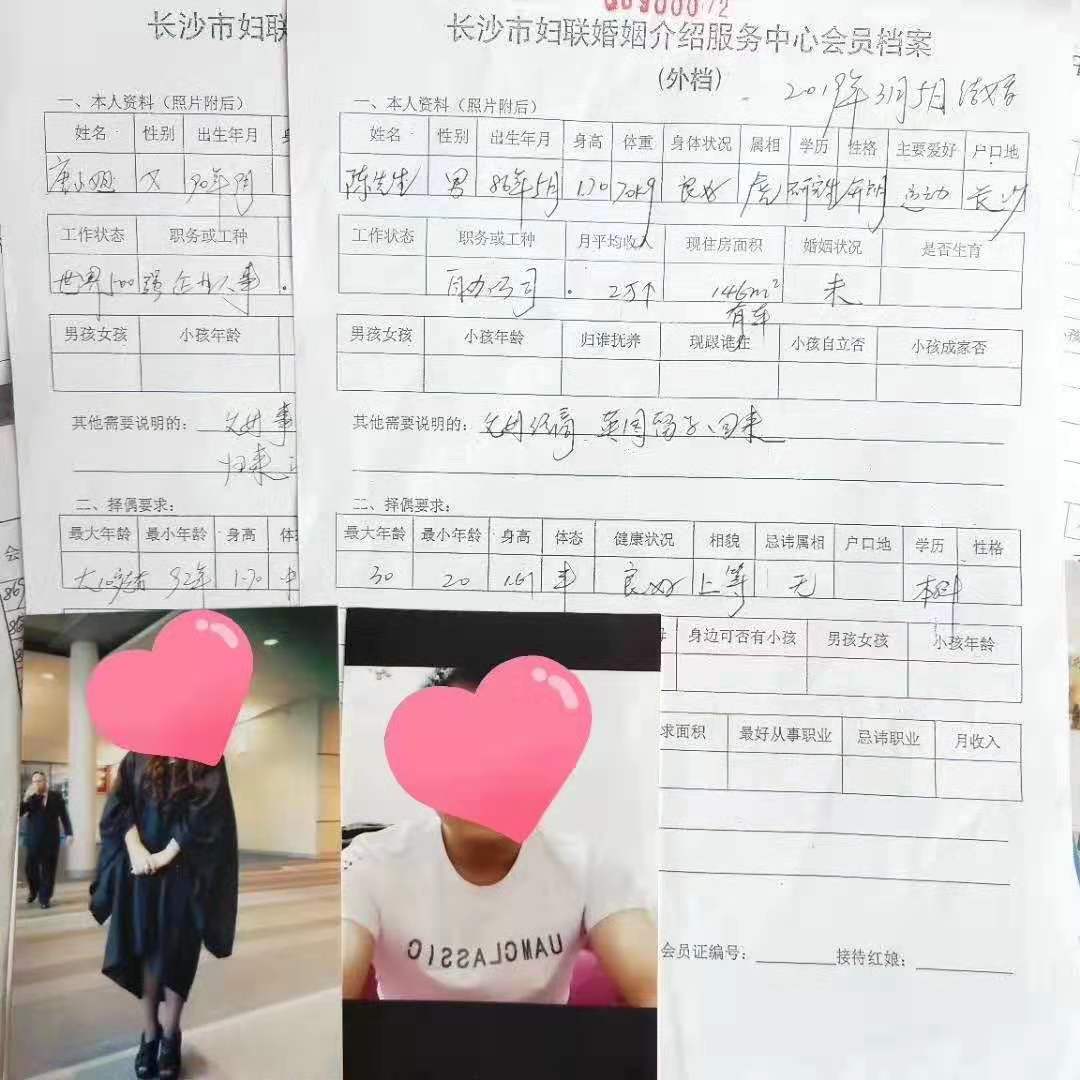 长沙市妇联
一、本人资料（照片附后）
姓名 性别 出生年月
唐小姐 女 90年
工作状态 职务或工种
世界100强 企业人事
男孩女孩 小孩年龄
其他需要说明的：父母
归来
二、择偶要求：
最大年龄 最小年龄 身高
大10岁 92年 1.70 中
00900072
长沙市妇联婚姻介绍服务中心会员档案
（外档）
2019年3月5日结婚
一、本人资料（照片附后）
姓名 性别 出生年月 身高 体重 身体状况 属相 学历 性格 主要爱好 户口地
陈先生 男 86年5月 1.70 70kg 良好 虎 研究生 开朗 运动 长沙
工作状态 职务或工种 月平均收入 现住房面积 婚姻状况 是否生育
自办公司 2万个 146m² 未
有车
男孩女孩 小孩年龄 归谁抚养 现跟谁在 小孩自立否 小孩成家否
其他需要说明的：父母经商 英国留学回来
二、择偶要求：
最大年龄 最小年龄 身高 体态 健康状况 相貌 忌讳属相 户口地 学历 性格
30 20 1.61 中 良好 上等 无 本科
身边可否有小孩 男孩女孩 小孩年龄
求面积 最好从事职业 忌讳职业 月收入
会员证编号： 接待红娘：
UAMCLASSIC